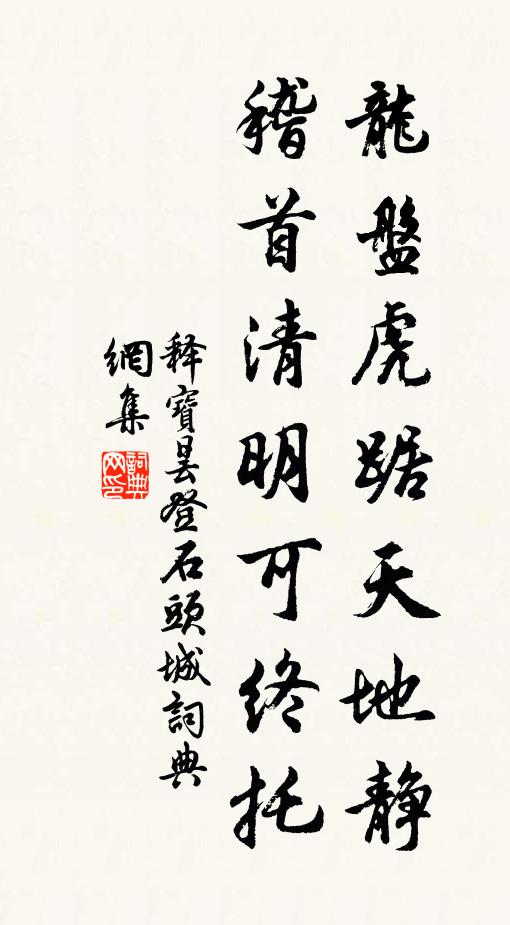 龍盤虎踞天地静
稽首清明可終托
释寶曇登石頭城詞典
網集
詞典
网印